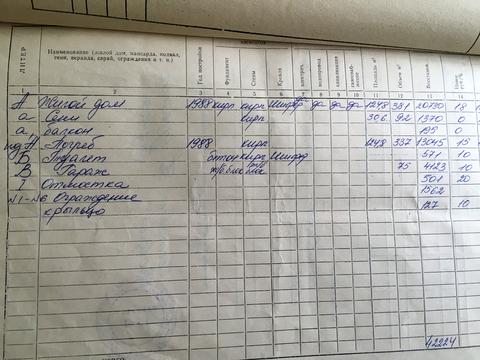 ЛИТЕР
Наименование (жилой дом, мансарда, подвал, сени, веранда, сарай, ограждения и т. п.)
Год постройки
Фундамент
Стены
Крыша
водопровод
канализация
Площадь м²
Объем м³
1 2 3 4 5 6 7 8 9 10 11 12 13 14
А Жилой дом 1988 кирп кирп Шифер да да да 1248 381 20730 18
а Сени кирп 306 92 1370 0
а балкон 195 0
под А Погреб 1988 кирп 1248 337 13045 15
Б Туалет бетон кирп Шифер 571 10
В Гараж 75 4123 10
I Отмостка 501 20
№1-№6 Ограждение 1562
крыльцо 127 10
42224